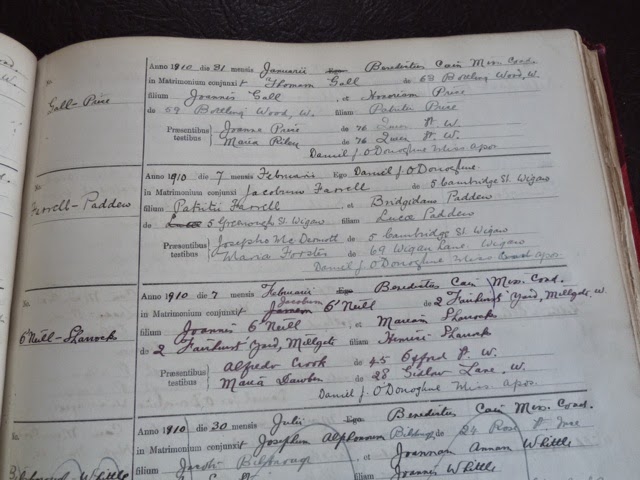 No.
Gall-Price
Anno 1910 die 31 mensis Januarii Ego Benedictus Cain Miss. Cond.
in Matrimonium conjunxit Thomam Gall de 69 Bottling Wood, W.
filium Joannis Gall, et Honoriam Price
de 69 Bottling Wood, W. filiam Patritii Price
Præsentibus Joanne Price de 76 Queen St W.
testibus Maria Riley de 76 Queen St. W.
Daniel J. O'Donoghue Miss. Apos.
No.
Farrell-Padden
Anno 1910 die 7 mensis Februarii Ego Daniel J O'Donoghue
in Matrimonium conjunxi Jacobum Farrell de 5 Cambridge St. Wigan
filium Patritii Farrell et Bridgidam Padden
de 5 Greenough St. Wigan filiam Lucæ Padden
Præsentibus Josepho McDermott de 5 Cambridge St. Wigan
testibus Maria Forster de 69 Wigan Lane. Wigan
Daniel J O'Donoghue Miss. Apos.
No.
O'Neill-Sharrock
Anno 1910 die 7 mensis Februarii Ego Benedictus Cain Miss. Cond.
in Matrimonium conjunxit Jacobum O'Neill de 2 Fairhurst Yard, Millgate, W.
filium Joannis O'Neill, et Mariam Sharrock
de 2 Fairhurst Yard, Millgate filiam Henrici Sharrock
Præsentibus Alfredo Crook de 45 Offord St. W.
testibus Maria Dawber de 28 Gidlow Lane, W.
Daniel J O'Donoghue Miss. Apos.
No.
Anno 1910 die 30 mensis Julii Ego Benedictus Cain Miss. Cond.
in Matrimonium conjunxit Josephum Alphonsum de 24 Rose
filium Jacobi Bilsborough et Joannam Annam Whittle
filiam Joannis Whittle